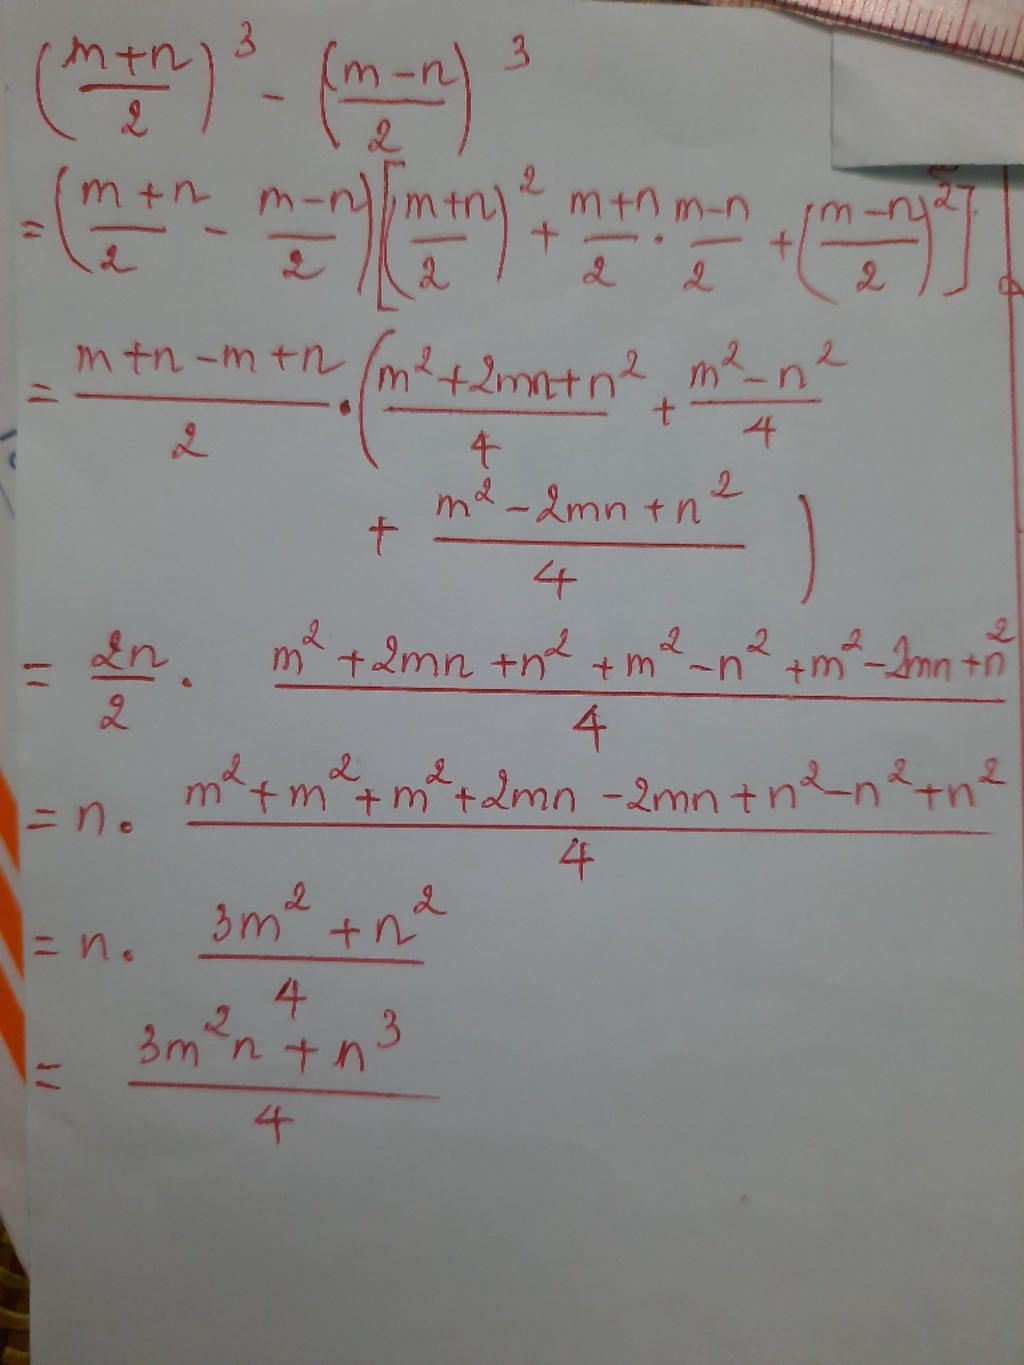 (m+n/2)³ - (m-n/2)³
= (m+n/2 - m-n/2)[(m+n/2)² + m+n/2 · m-n/2 + (m-n/2)²]
= m+n-m+n/2 · (m²+2mn+n²/4 + m²-n²/4
+ m²-2mn+n²/4)
= 2n/2 · m²+2mn+n²+m²-n²+m²-2mn+n²/4
= n · m²+m²+m²+2mn-2mn+n²-n²+n²/4
= n · 3m²+n²/4
= 3m²n+n³/4